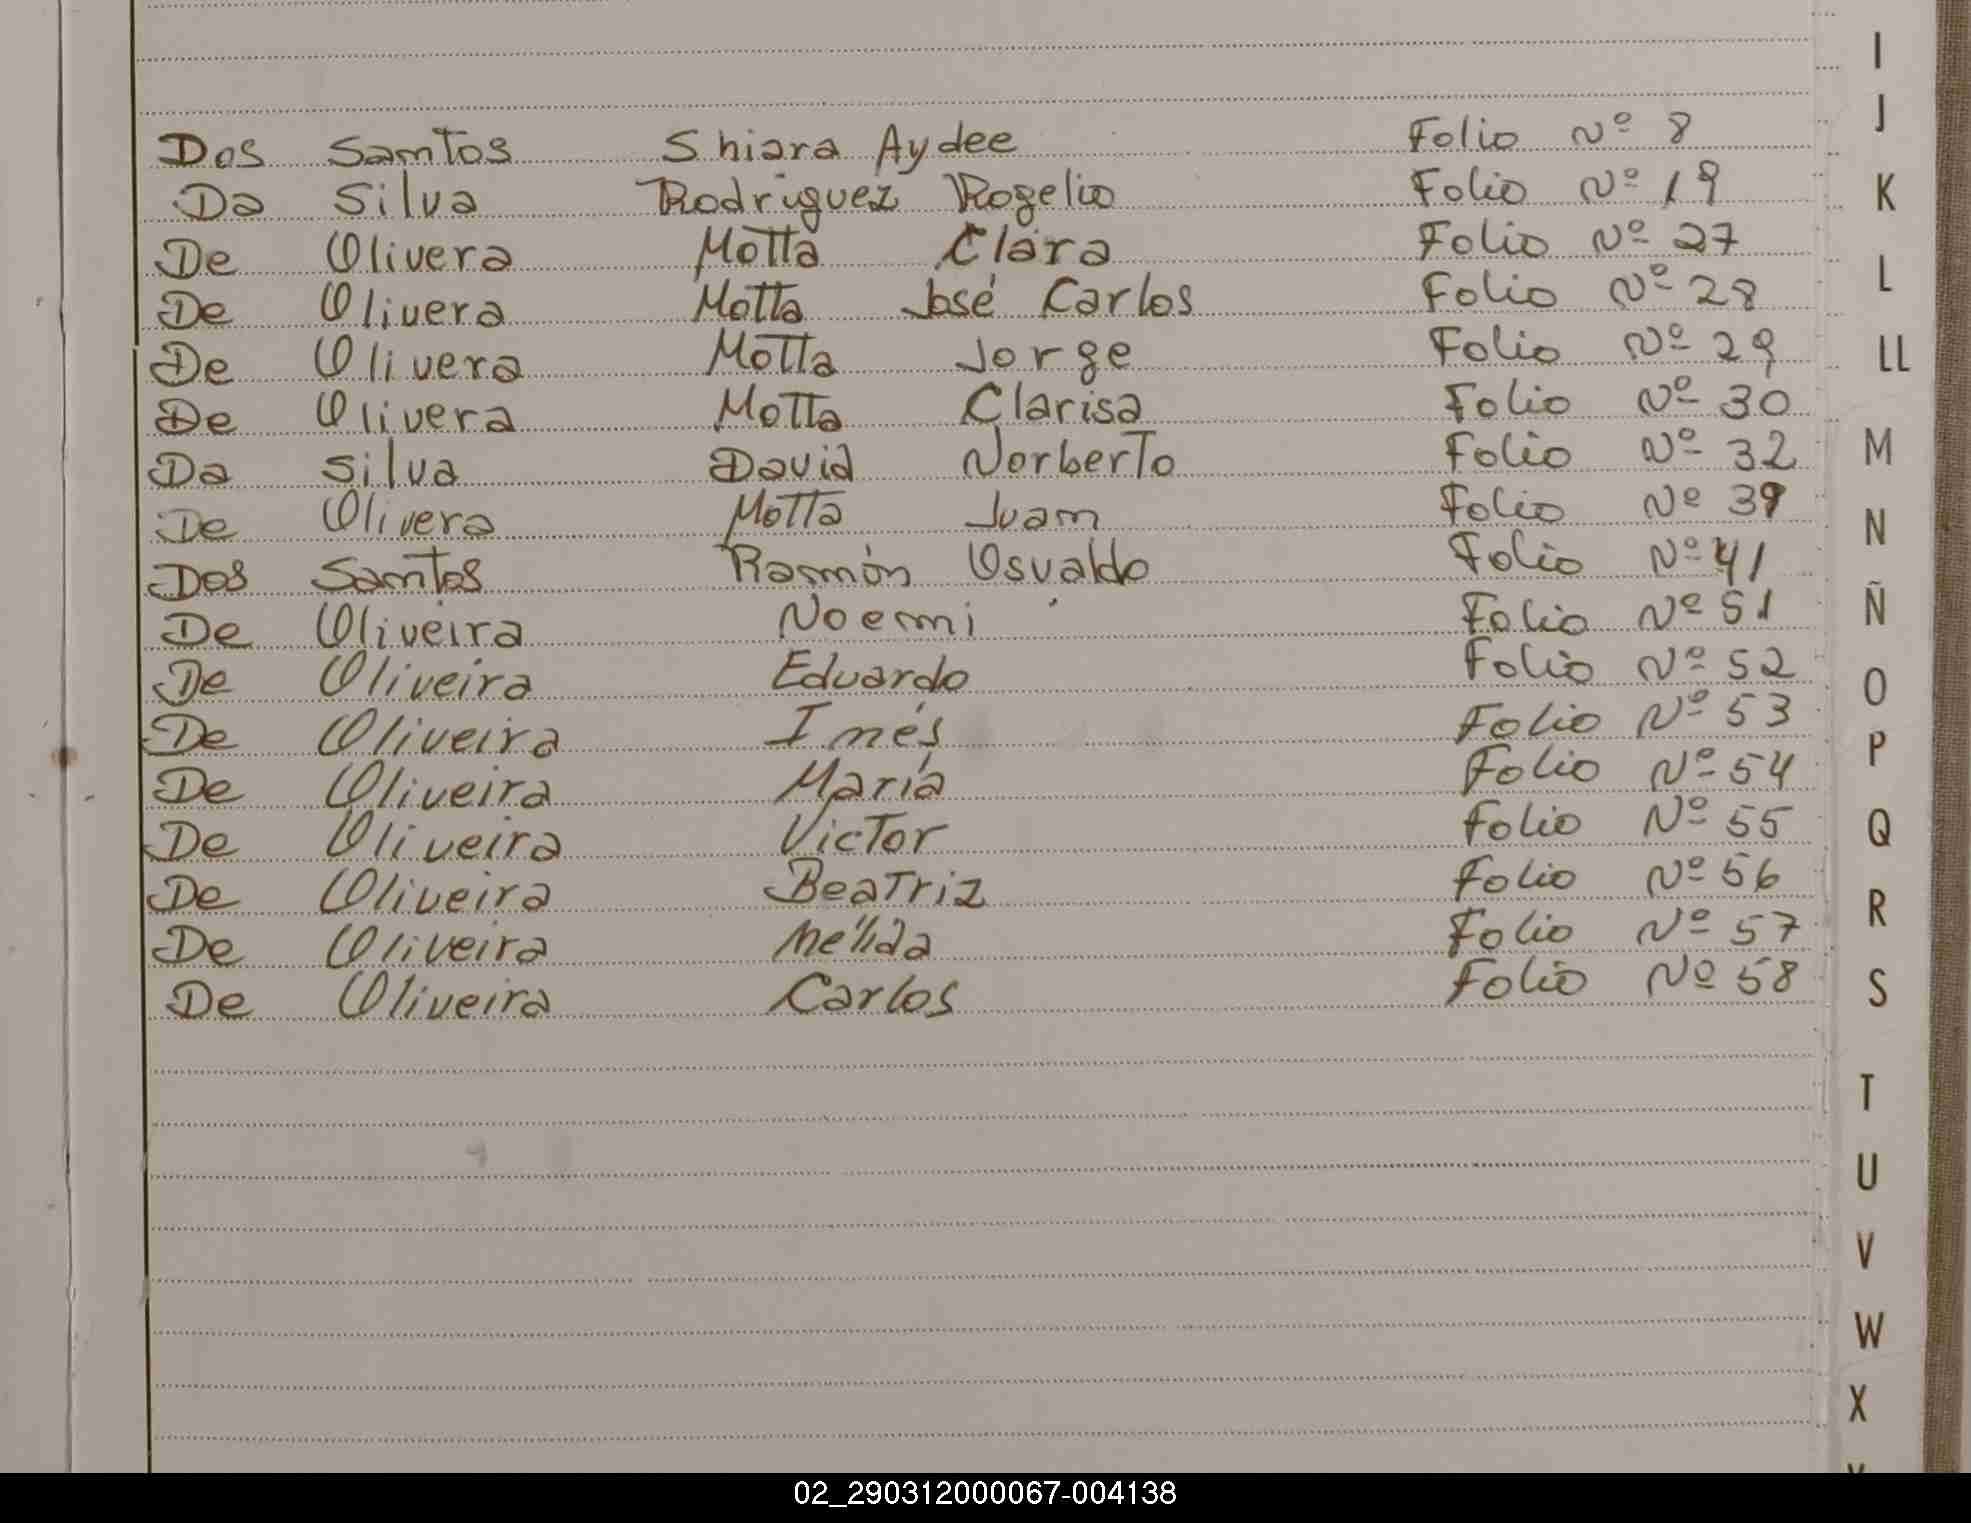 Dos Santos Shiara Aydee Folio Nº 8
Da Silva Rodriguez Rogelio Folio Nº 19
De Olivera Motta Clara Folio Nº 27
De Olivera Motta José Carlos Folio Nº 28
De Olivera Motta Jorge Folio Nº 29
De Olivera Motta Clarisa Folio Nº 30
Da Silva David Norberto Folio Nº 32
De Olivera Motta Juan Folio Nº 39
Dos Santos Ramón Osvaldo Folio Nº 41
De Oliveira Noemi Folio Nº 51
De Oliveira Eduardo Folio Nº 52
De Oliveira Inés Folio Nº 53
De Oliveira María Folio Nº 54
De Oliveira Victor Folio Nº 55
De Oliveira Beatriz Folio Nº 56
De Oliveira Nélida Folio Nº 57
De Oliveira Carlos Folio Nº 58
I
J
K
L
LL
M
N
Ñ
O
P
Q
R
S
T
U
V
W
X
02_290312000067-004138